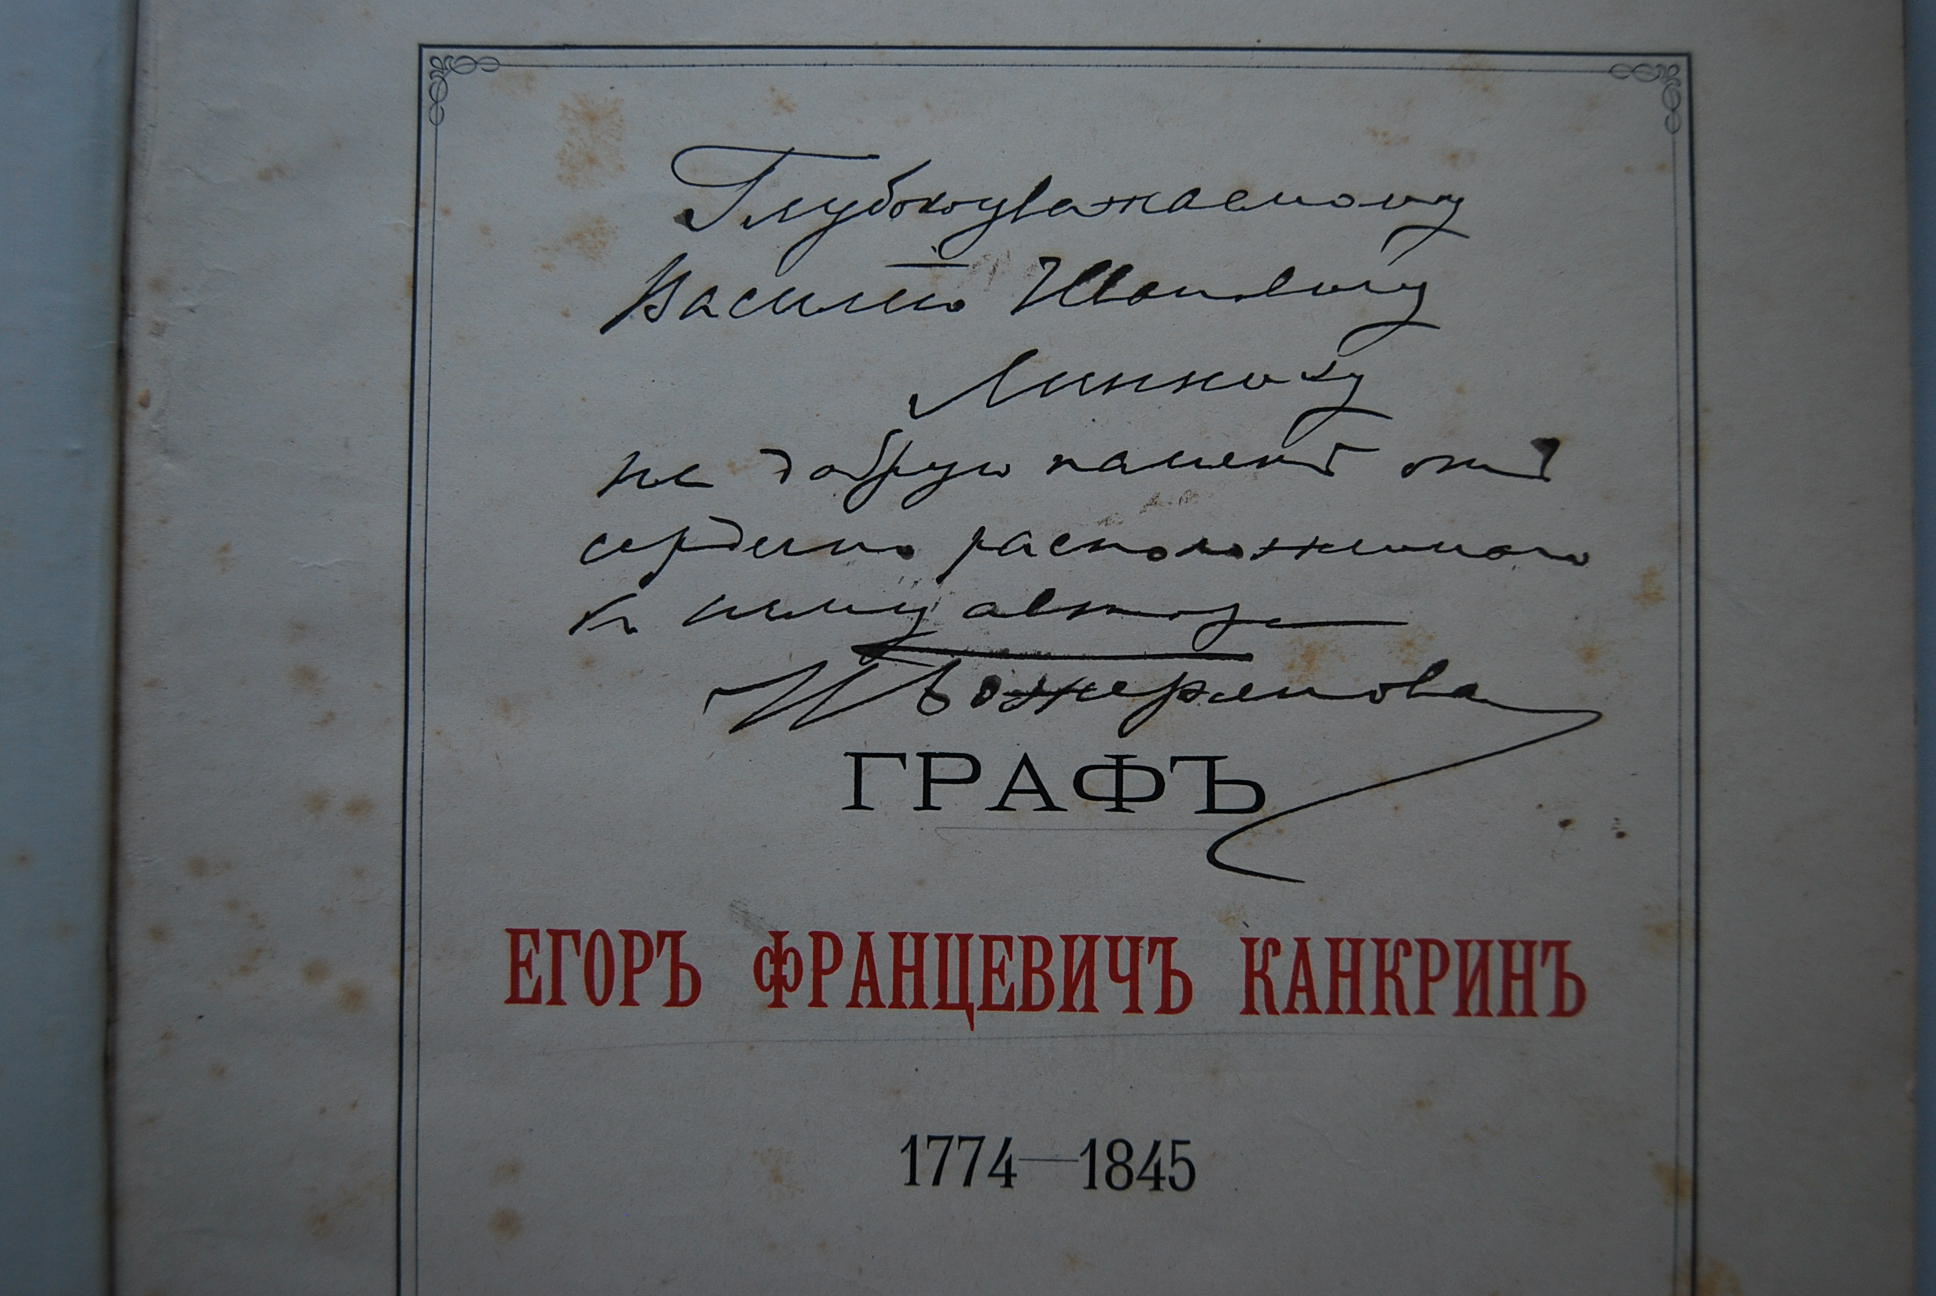 Глубокоуважаемому
Василію Ивановичу
на добрую память отъ
сердечно расположеннаго
къ нему автора
И Божерянова
ГРАФЪ
ЕГОРЪ ФРАНЦЕВИЧЪ КАНКРИНЪ
1774—1845